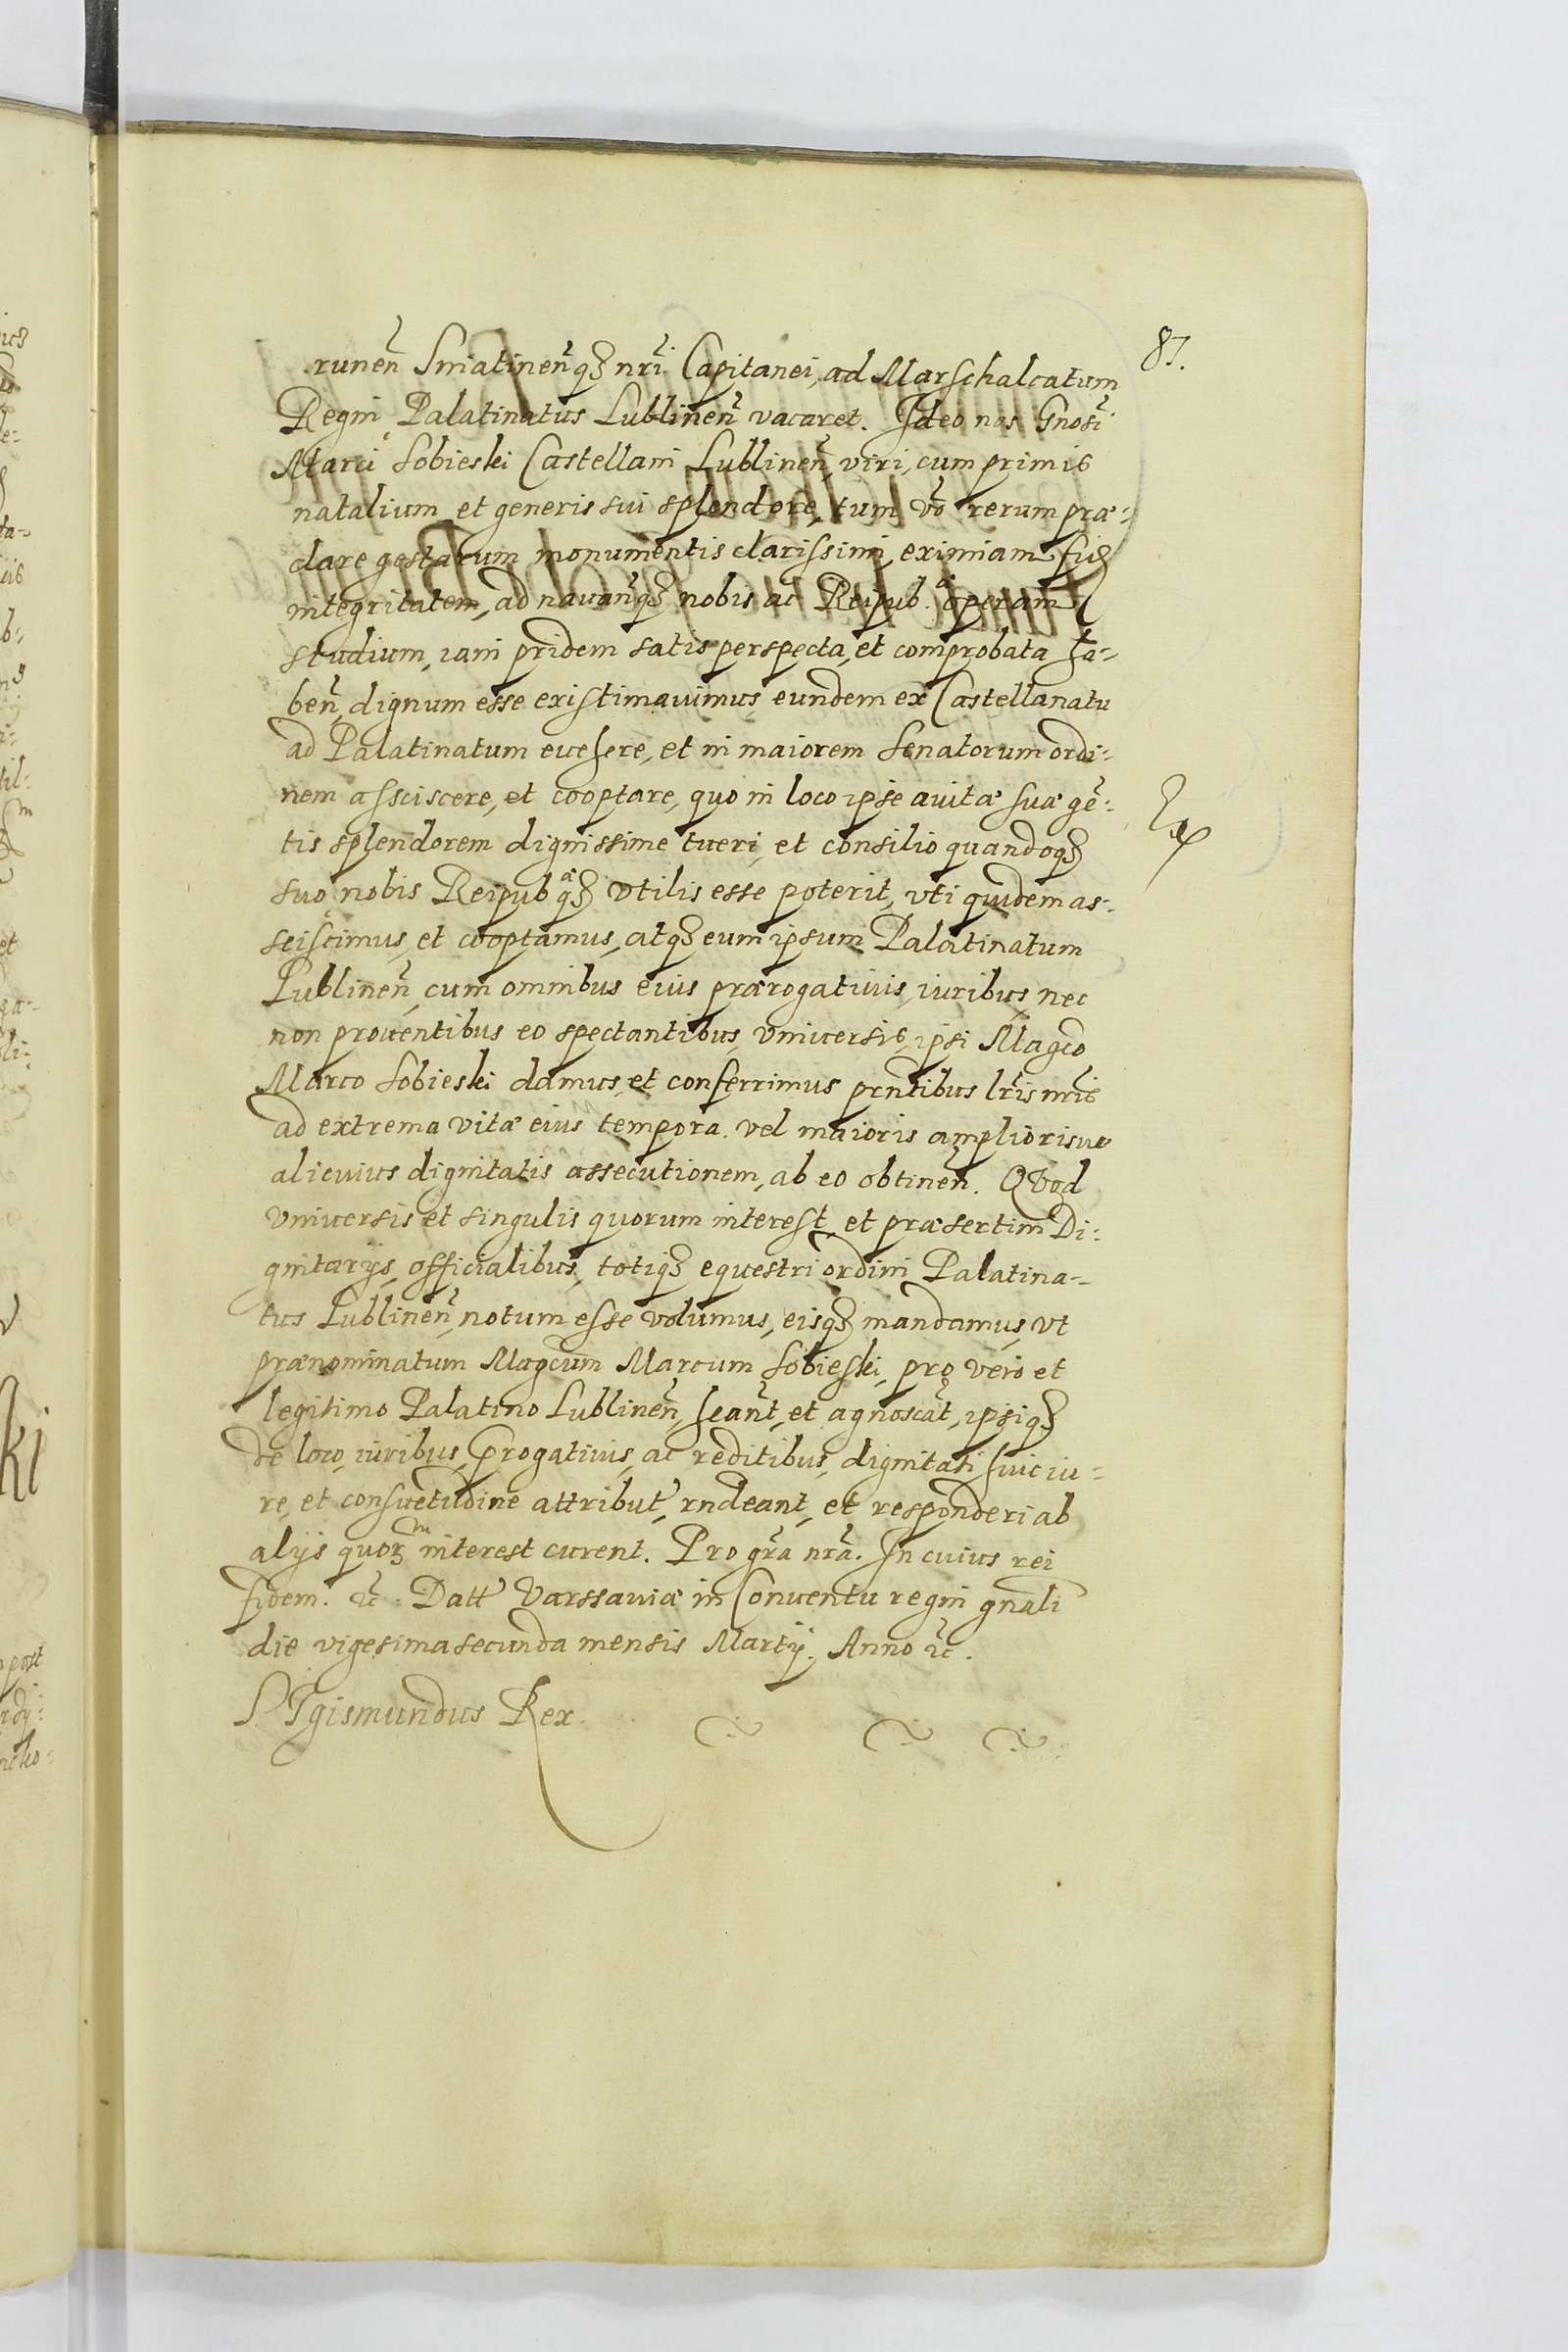 87.
runeñ Sniatineñqȝ nrĩ Capitanei, ad Marschalcatum
Regni, Palatinatus Lublineñ vacaret. Ideo nos Gnosi
Marci Sobieski Castellani Lublineñ, viri, cum primis
natalium et generis sui splendore, tum vo rerum præ-
clare gestarum monumentis clarissimi, eximiam
integritatem, ad navanqȝ nobis ac Reipub. operam
studium, iam pridem satis perspecta, et comprobata ha-
beñ, dignum esse existimauimus, eundem ex Castellanatu
ad Palatinatum euehere, et in maiorem Senatorum ordi-
nem assciscere, et cooptare, quo in loco ipse auitæ suæ gẽ-
tis splendorem dignissime tueri, et consilio quandoqȝ
suo, nobis Reipubqȝ vtilis esse poterit, vti quidem as-
sciscimus, et cooptamus, atqȝ eum ipsum Palatinatum
Lublineñ, cum omnibus eius prærogatiuis, iuribus, nec
non prouentibus eo spectantibus, vniuersis, ipsi Magco
Marco Sobieski damus, et conferrimus prntibus lris nris
ad extrema vitæ eius tempora. vel maioris ampliorisue
alicuius dignitatis assecutionem, ab eo obtineñ. Qvod
vniuersis et singulis quorum interest, et præsertim Di-
gnitarijs, officialibus, totiqȝ equestri ordini Palatina-
tus Lublineñ, notum esse volumus, eisqȝ mandamus, vt
prænominatum Magcum Marcum Sobieski, pro vero et
legitimo Palatino Lublineñ, heant, et agnoscãt, ipsiqȝ
de loco, iuribus, progatiuis, ac reditibus, dignitati huic iu-
re, et consuetudine attribut, rndeant, et responderi ab
alijs quor interest curent. Pro gra nra. In cuius rei
fidem. &c. Datt Varssauiæ in Conuentu regni gnali
die vigesima secunda mensis Martij. Anno &c.
Sigismundus Rex.